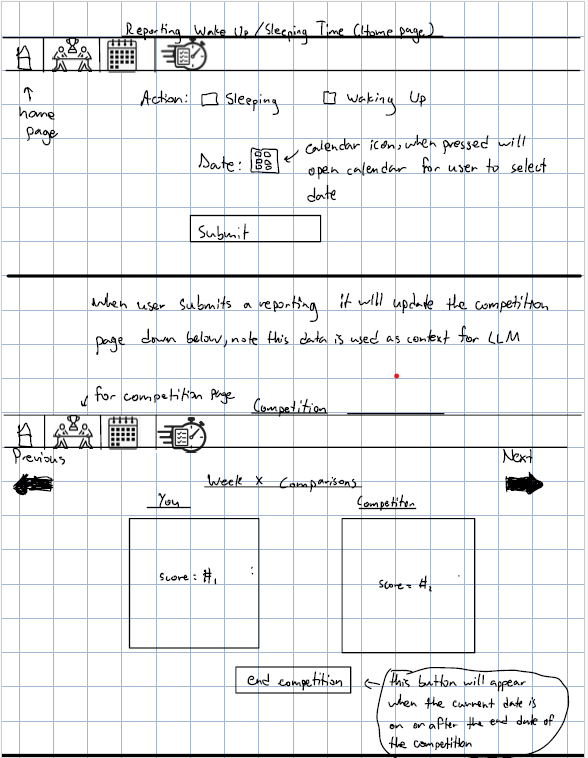 Reporting Wake Up / Sleeping Time (Home page)
home page
Action: Sleeping Waking Up
Date:
calendar icon, when pressed will
open calendar for user to select
date
Submit
When user submits a reporting it will update the competition
page down below, note this data is used as context for LLM
for competition page
Competition
Previous
Next
Week x Comparisons
You
Competitor
score = #1
score = #2
end competition
this button will appear
when the current date is
on or after the end date of
the competition